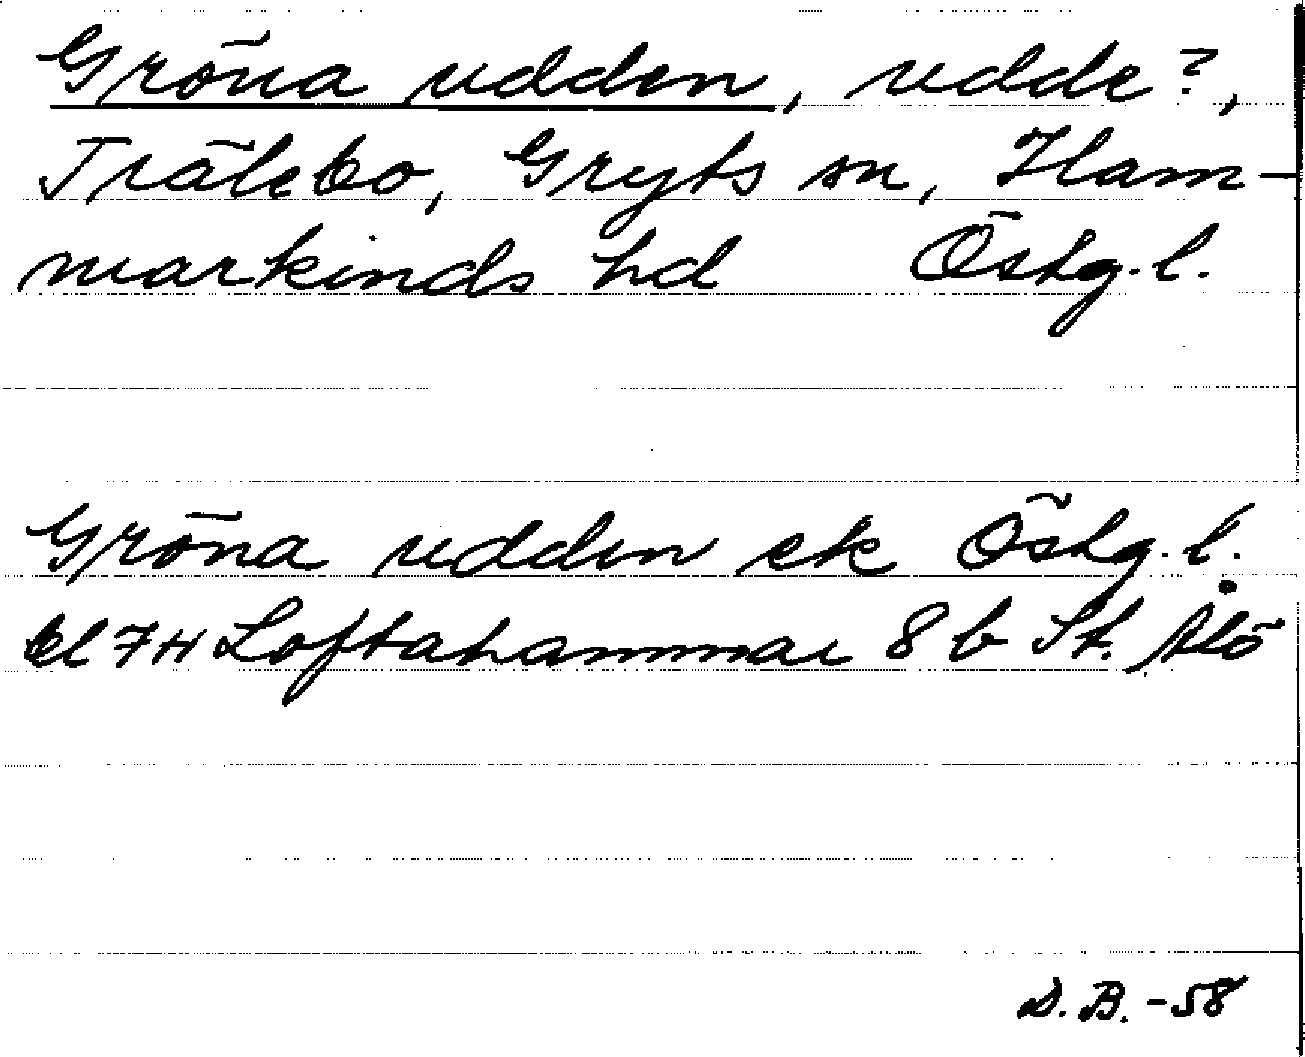 Gröna udden, udde?,
Trälebo, Gryts sn, Ham-
markinds hd Östg.l.
Gröna udden ek Östg.l.
bl 7H Loftahammar 8 b St. Ålö
D.B. -58